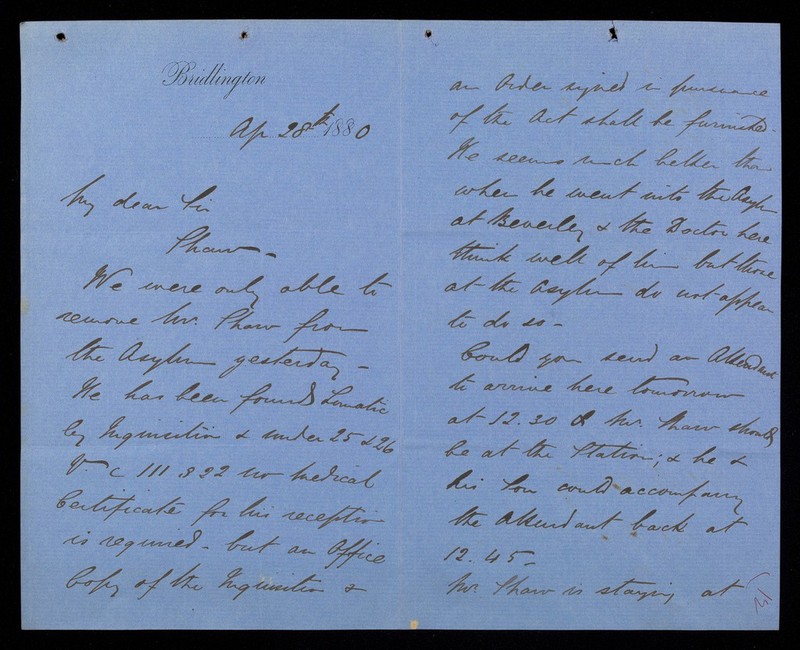 Bridlington
Ap 28th 1880
My dear Sir
Shaw -
We were only able to
remove Mr. Shaw from
the Asylum yesterday -
He has been found Lunatic
by Inquisition & under 25 & 26
V. c 111 s 22 no medical
Certificate for his reception
is required - but an Office
Copy of the Inquisition &
an Order signed in pursuance
of the Act shall be furnished.
He seems much better than
when he went into the Asylum
at Beverley & the Doctor here
think well of him but those
at the Asylum do not appear
to do so -
Could you send an Attendant
to arrive here tomorrow
at 12.30 & Mr. Shaw should
be at the Station; & he &
his Son could accompany
the Attendant back at
12.45 -
Mr. Shaw is staying at